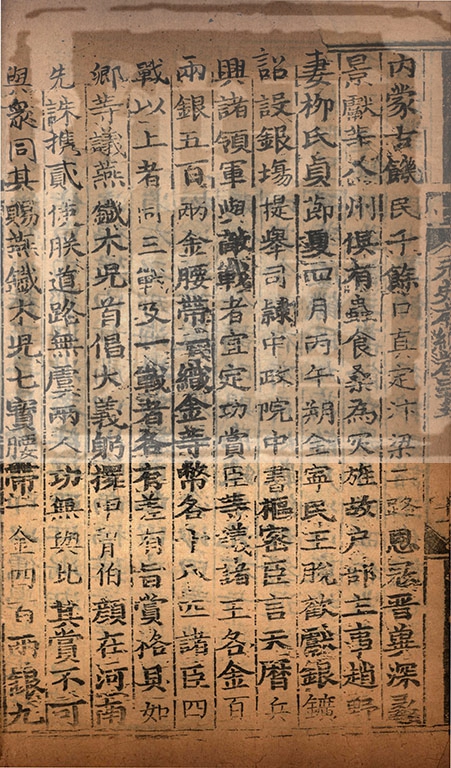 内蒙古饑民千餘口真定汴梁二路恩冠晉冀深蠡
景獻等八州俱有蟲食桑為灾旌故户部主事趙野
妻柳氏貞節夏四月丙午朔全寧民王脫歡獻銀鑛
詔設銀塲提舉司隷中政院中書樞密臣言天曆兵
興諸領軍與敵戰者宜定功賞臣等議諸王各金百
兩銀五百兩金腰帶一織金等幣各十八匹諸臣四
戰以上者同三戰及一戰者各有差有旨賞格具如
卿等議燕鐵木兒首倡大義躬擐甲胄伯顔在河南
先誅携貳使朕道路無虞兩人功無與比其賞不可
與衆同其賜燕鐵木兒七寶腰帶一金四百兩銀九